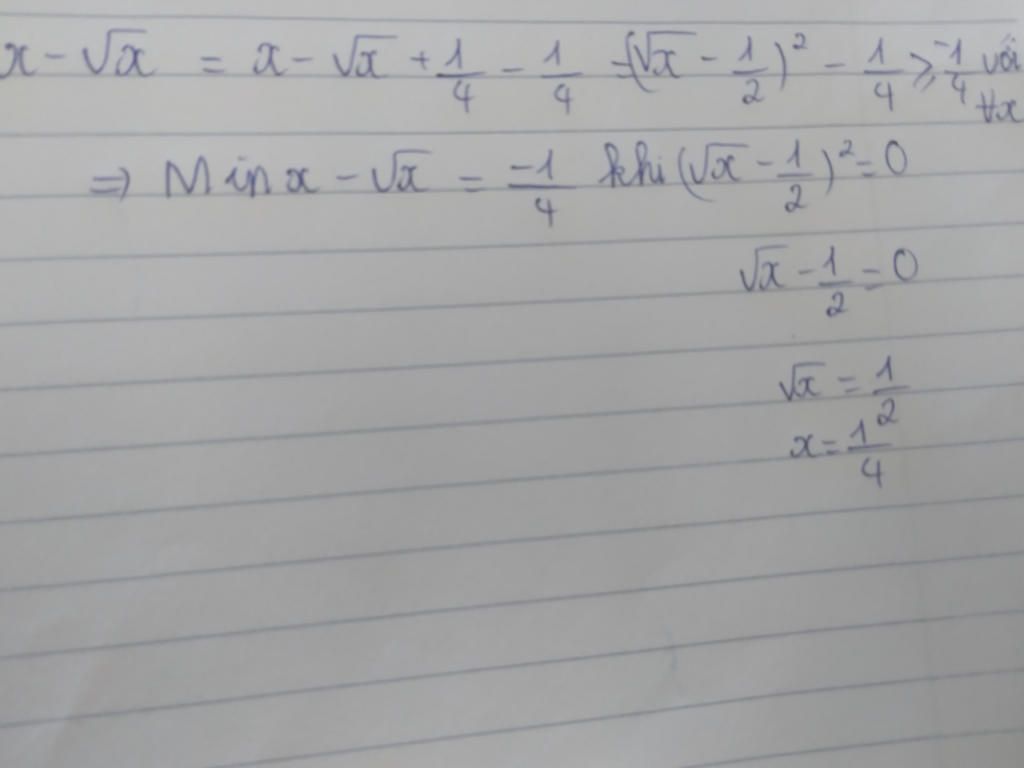 x - √x = x - √x + 1/4 - 1/4 = (√x - 1/2)² - 1/4 ≥ -1/4 với ∀x
⇒ Min x - √x = -1/4 khi (√x - 1/2)² = 0
√x - 1/2 = 0
√x = 1/2
x = 1/4